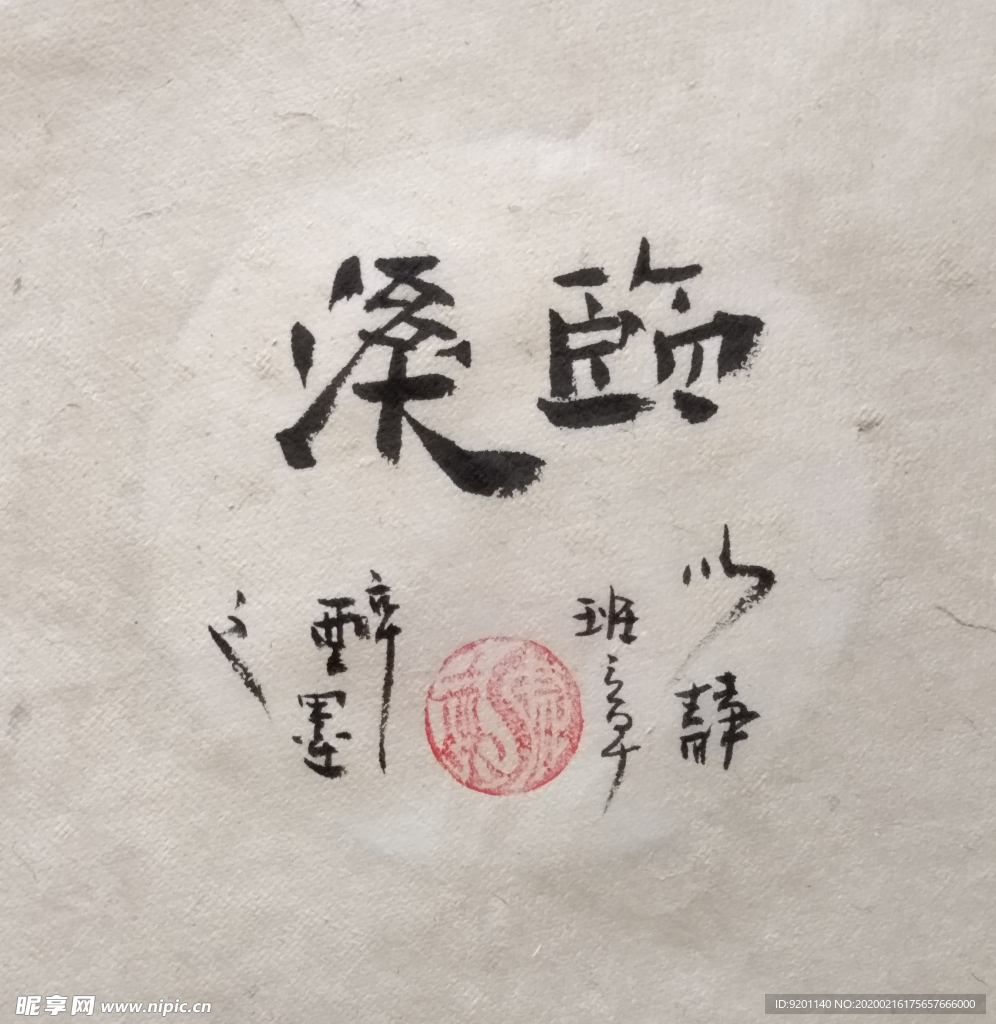 臨溪
以靜
班章
醉墨
昵享网 www.nipic.cn
ID:9201140 NO:20200216175657666000